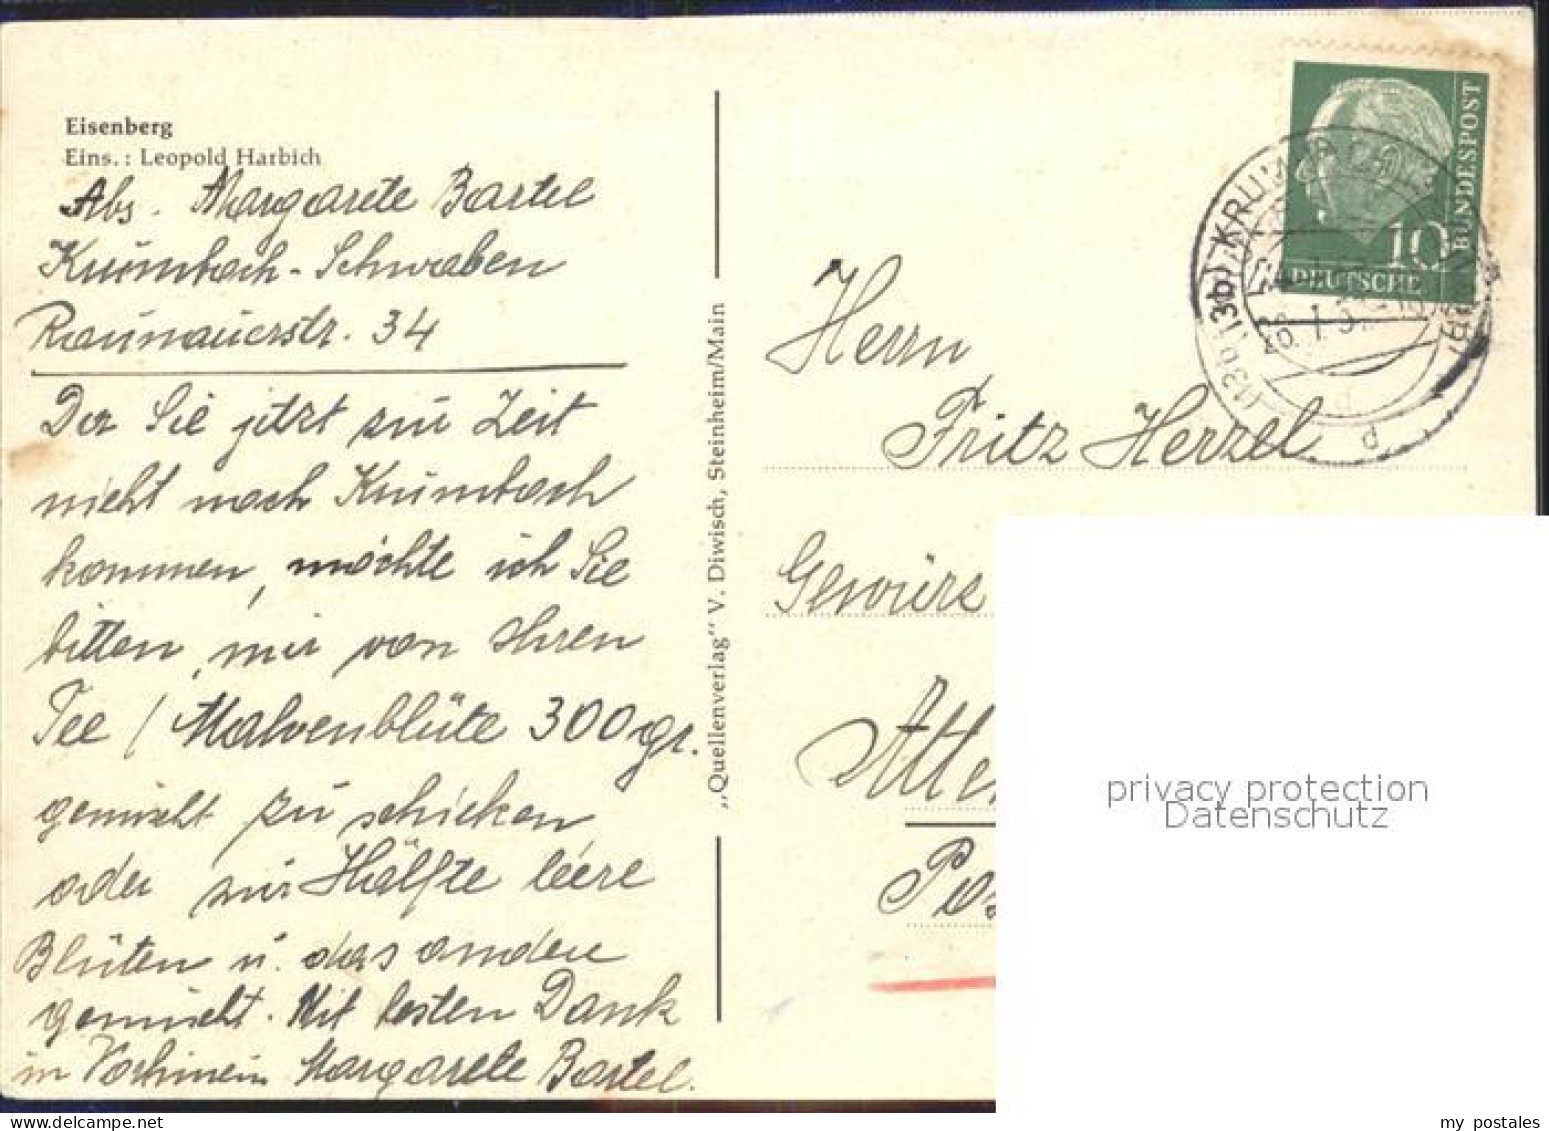 Eisenberg
Eins.: Leopold Harbich
Abs. Margarete Bartel
Krumbach-Schwaben
Raunauerstr. 34
Da Sie jetzt zur Zeit
nicht nach Krumbach
kommen, möchte ich Sie
bitten, mir von Ihren
Tee / Malvenblüte 300gr.
gemischt zu schicken
oder mir Hälfte leere
Blüten u. das andere
gemischt. Mit besten Dank
in Vorhinein Margarete Bartel.
„Quellenverlag" V. Diwisch, Steinheim/Main
DEUTSCHE
BUNDESPOST
10
(13b) KRUMBACH
26. 1. 5
Herrn
Fritz Herzel
Gewürz
privacy protection
Datenschutz
my postales